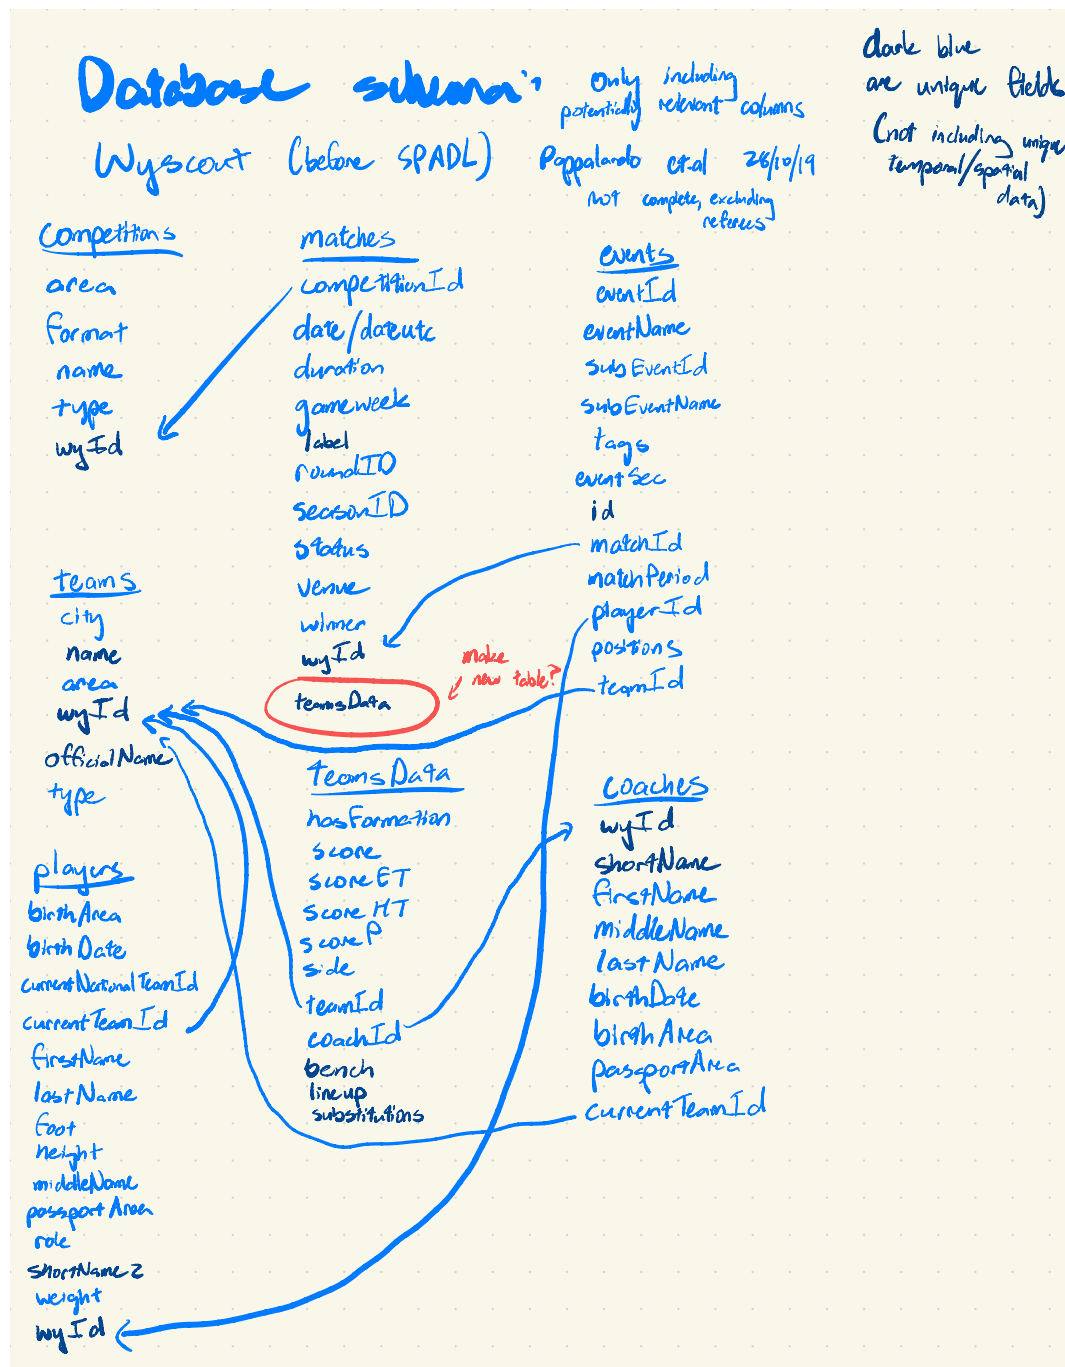 Database schema:
Only including
potentially relevant columns
dark blue
are unique fields
(not including unique
temporal/spatial
data)
Wyscout (before SPADL)
Pappalardo et.al 28/10/19
not complete, excluding
referees
competitions
area
format
name
type
wyId
matches
competitionId
date/dateutc
duration
gameweek
label
roundID
seasonID
status
venue
winner
wyId
teamsData
make
new table?
events
eventId
eventName
subEventId
subEventName
tags
eventSec
id
matchId
matchPeriod
playerId
positions
teamId
teams
city
name
area
wyId
officialName
type
teamsData
hasFormation
score
scoreET
scoreHT
scoreP
side
teamId
coachId
bench
lineup
substitutions
coaches
wyId
shortName
firstName
middleName
lastName
birthDate
birthArea
passportArea
currentTeamId
players
birthArea
birthDate
currentNationalTeamId
currentTeamId
firstName
lastName
foot
height
middleName
passportArea
role
shortName2
weight
wyId